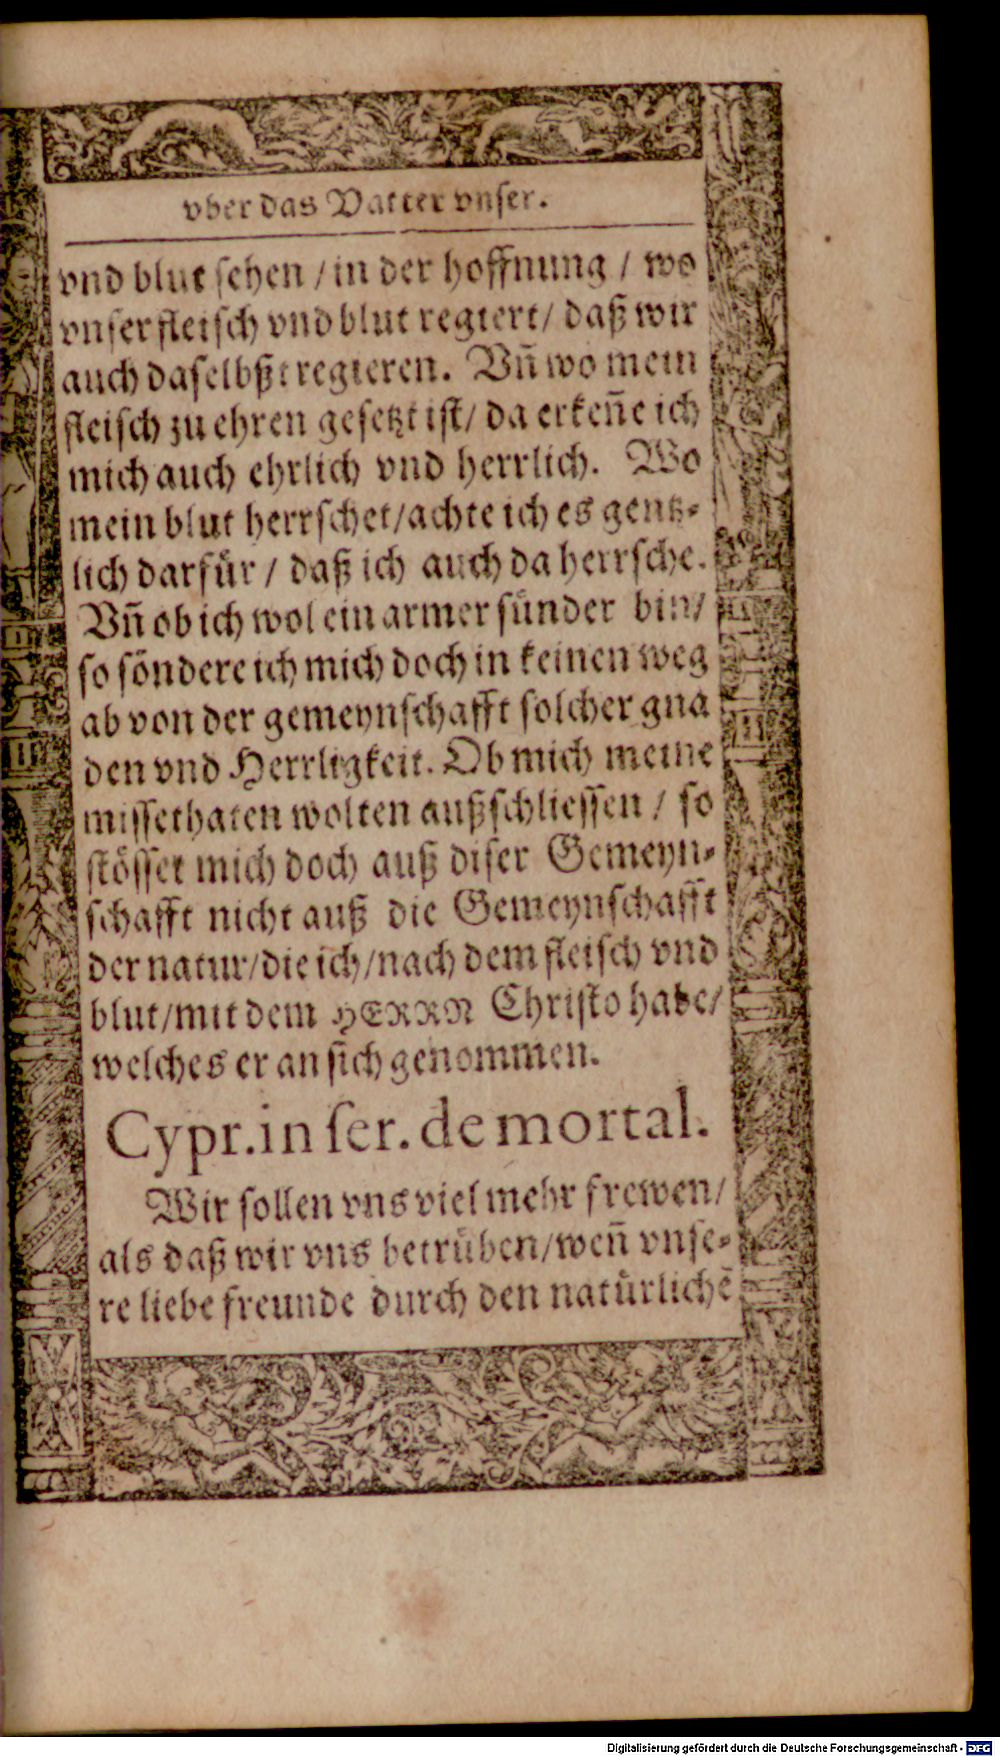 vber das Vatter vnser.
vnd blut sehen / in der hoffnung / wo
vnser fleisch vnd blut regiert / daß wir
auch daselbßt regieren. Vñ wo mein
fleisch zu ehren gesetzt ist / da erkeñe ich
mich auch ehrlich vnd herrlich. Wo
mein blut herrschet / achte ich es gentz-
lich darfuͤr / daß ich auch da herrsche.
Vñ ob ich wol ein armer suͤnder bin /
so soͤndere ich mich doch in keinen weg
ab von der gemeynschafft solcher gna
den vnd Herrligkeit. Ob mich meine
missethaten wolten außschliessen / so
stoͤsset mich doch auß diser Gemeyn-
schafft nicht auß die Gemeynschafft
der natur / die ich / nach dem fleisch vnd
blut / mit dem HERRN Christo habe /
welches er an sich genommen.
Cypr. in ser. de mortal.
Wir sollen vns viel mehr frewen /
als daß wir vns betruͤben / weñ vnse-
re liebe freunde durch den natuͤrlichẽ
Digitalisierung gefördert durch die Deutsche Forschungsgemeinschaft - DFG